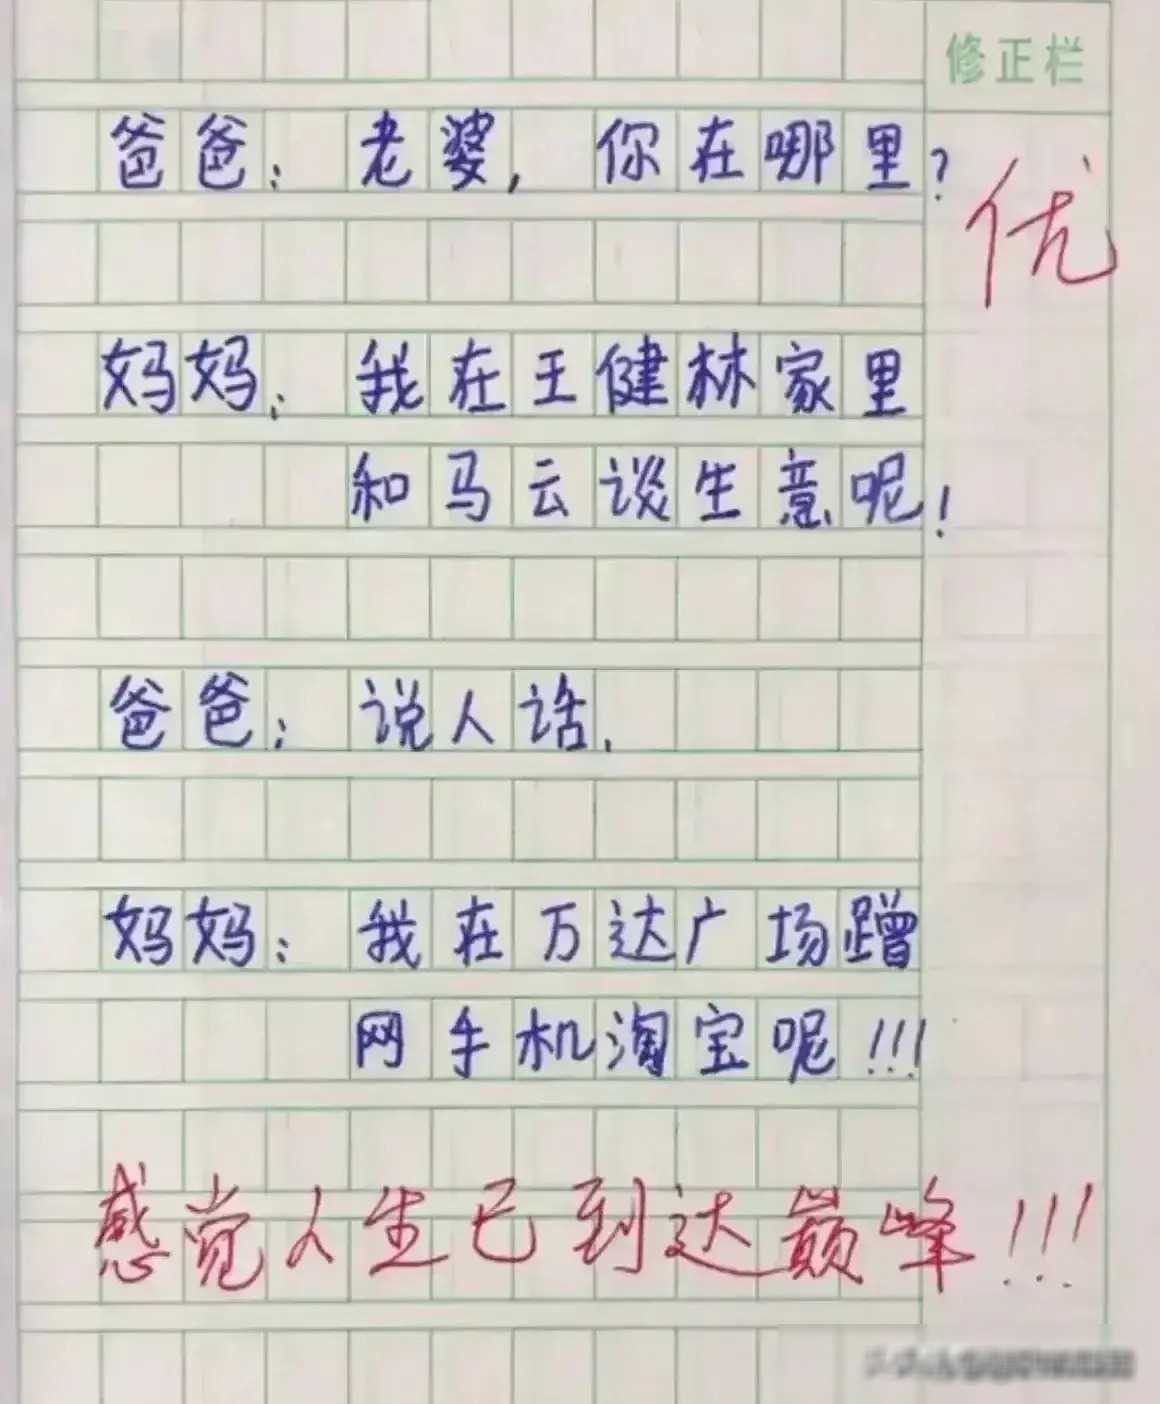 修正栏
爸爸：老婆，你在哪里？
优
妈妈：我在王健林家里
和马云谈生意呢！
爸爸：说人话．
妈妈：我在万达广场蹭
网手机淘宝呢！！！
感觉人生已到达巅峰！！！